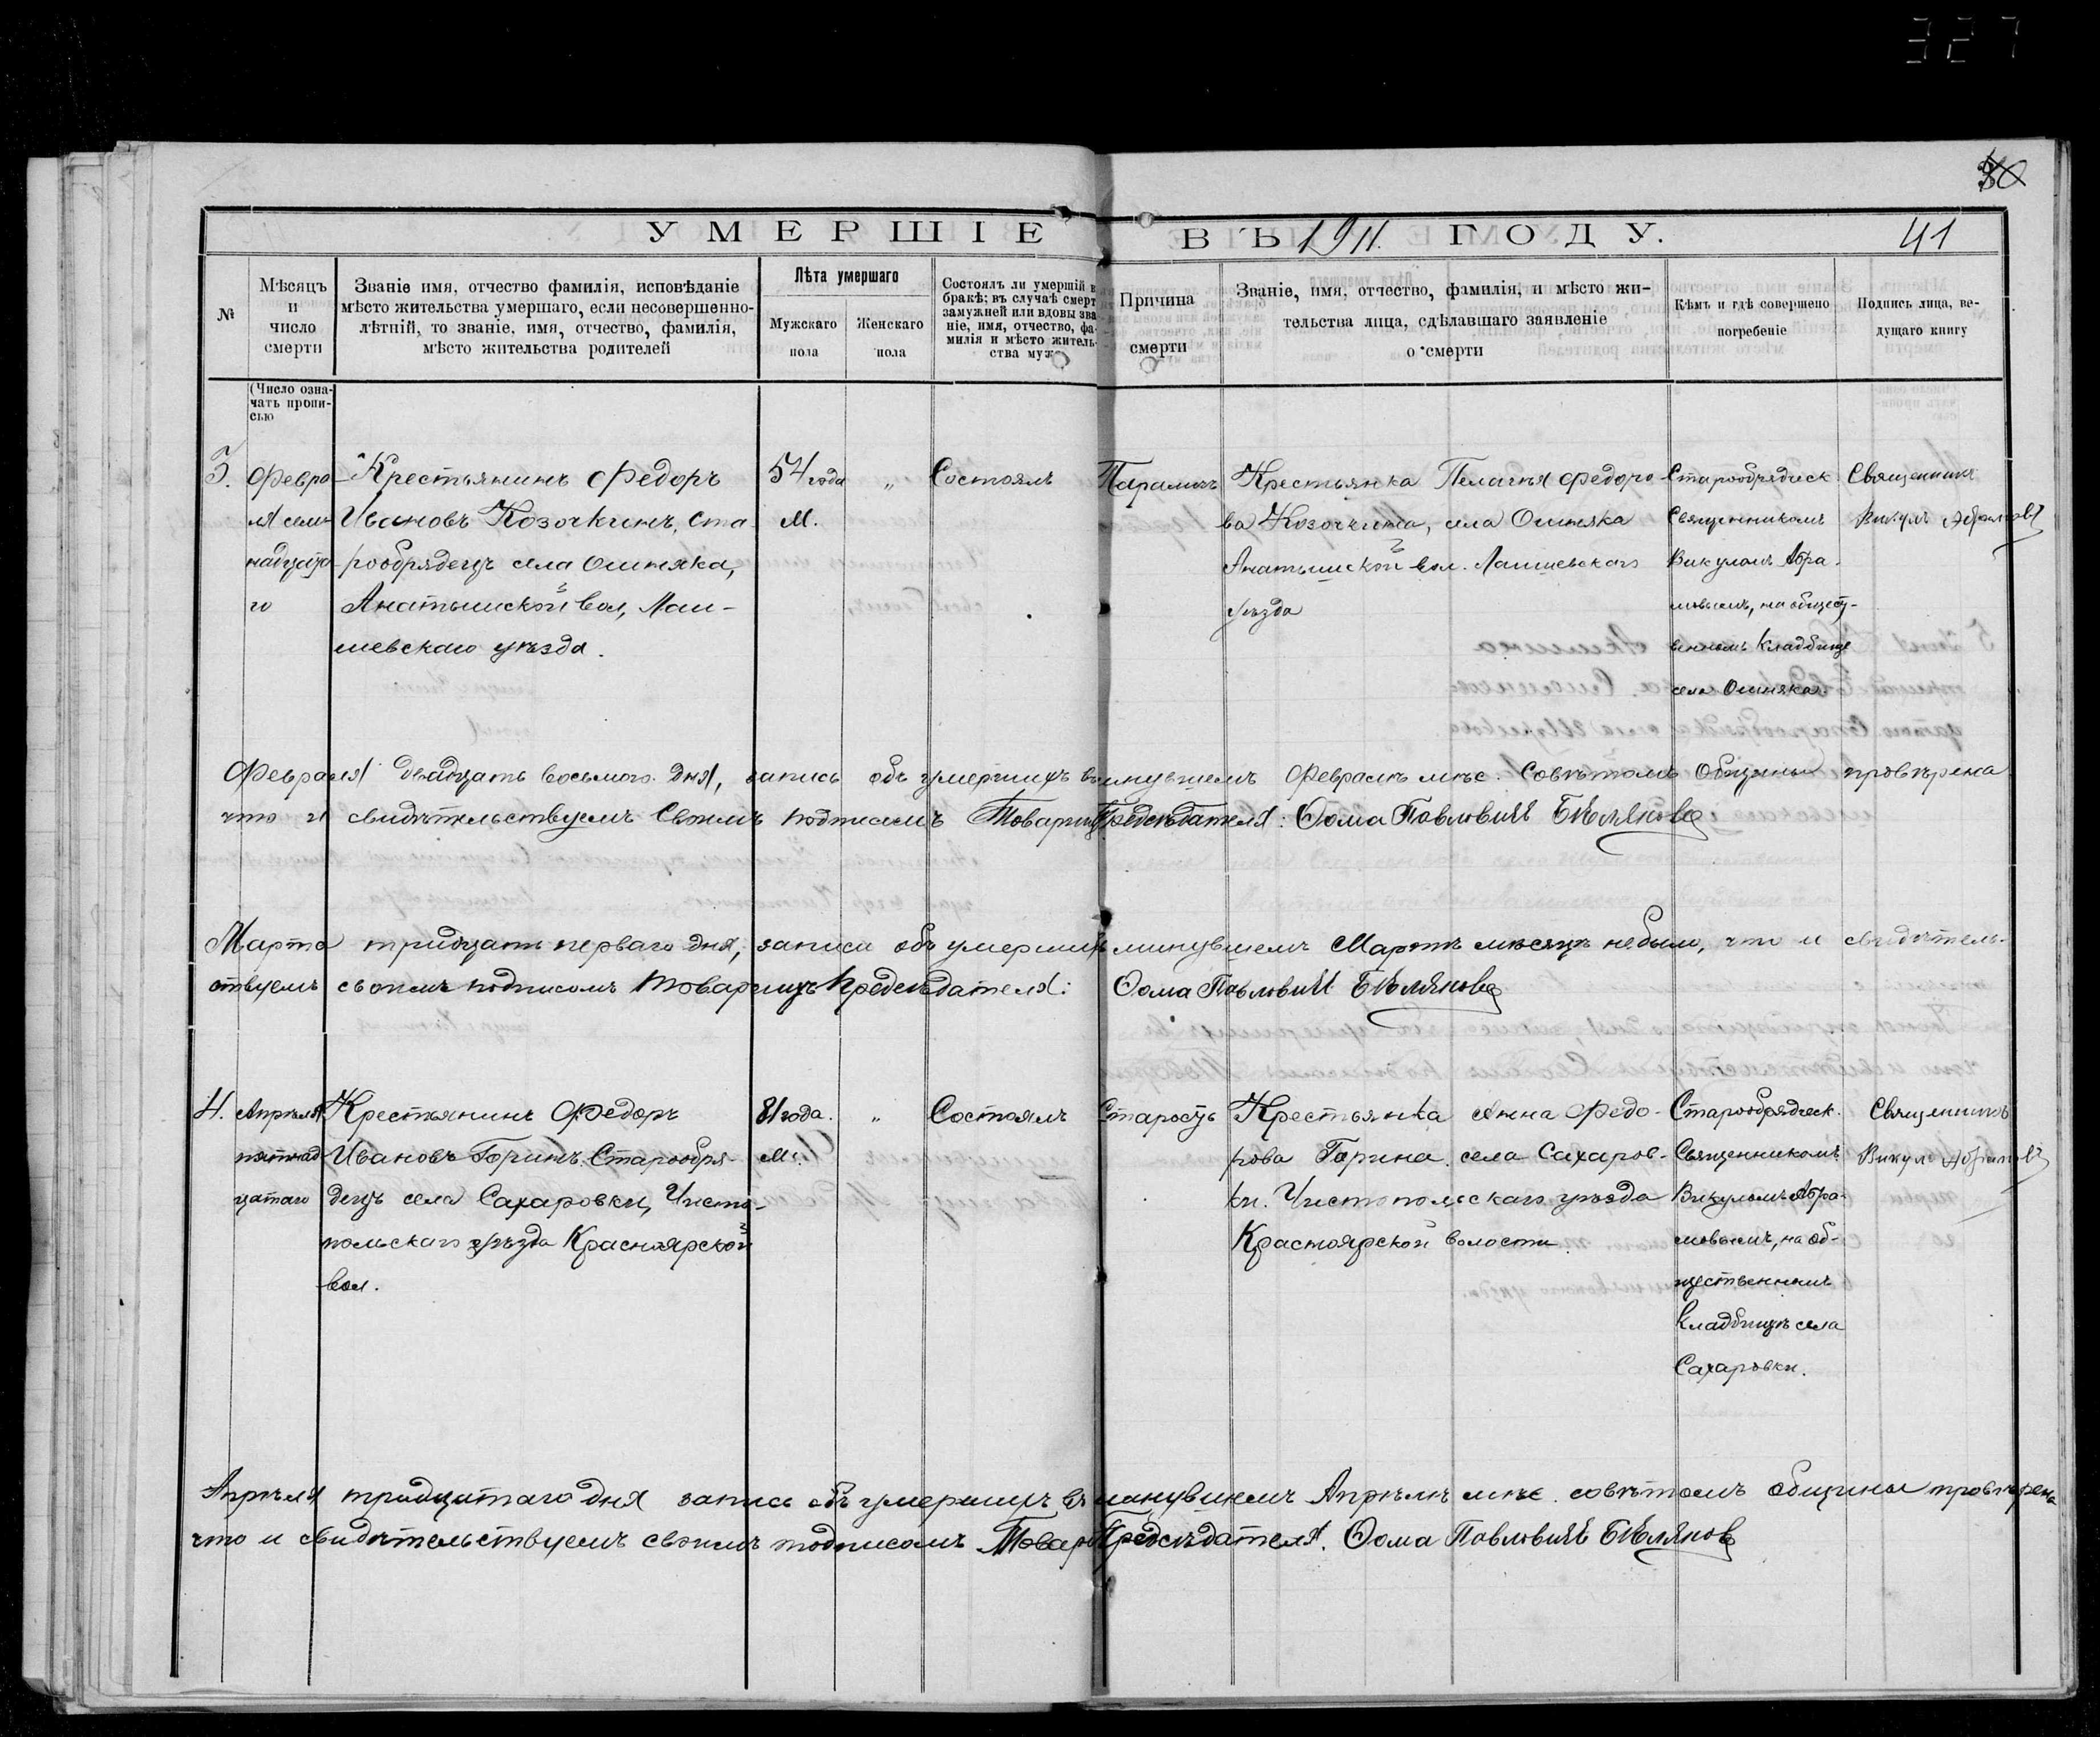 327
30
УМЕРШІЕ ВЪ 1911. ГОДУ. 41
№
Мѣсяцъ
и
число
смерти
Званіе имя, отчество фамилія, исповѣданіе
мѣсто жительства умершаго, если несовершенно-
лѣтній, то званіе, имя, отчество, фамилія,
мѣсто жительства родителей
Лѣта умершаго
Мужскаго
пола
Женскаго
пола
Состоялъ ли умершій в
бракѣ; въ случаѣ смерт
замужней или вдовы зва
ніе, имя, отчество, фа-
милія и мѣсто житель-
ства муж
Причина
смерти
Званіе, имя, отчество, фамилія, и мѣсто жи-
тельства лица, сдѣлавшаго заявленіе
о смерти
Кѣмъ и гдѣ совершено
погребеніе
Подпись лица, ве-
дущаго книгу
(Число озна-
чать пропи-
сью
3.
Февра
ля сем
надцата
го
Крестьянинъ Федоръ
Ивановъ Козочкинъ, ста-
рообрядецъ села Ошняка,
Анатышской вол, Лаи-
шевскаго уѣзда.
54 года
м.
"
Состоялъ
Параличъ
Крестьянка Пелагея Федоро-
ва Козочкина, села Ошняка
Анатышской вол. Лаишевскаго
уѣзда
Старообрядческ
священникомъ
Викуломъ Абра-
мовымъ, на общест-
венномъ кладбище
села Ошняка
Священникъ
Викулъ Абрамовъ
Февраля двадцать восьмого дня, запись объ умершихъ въ минувшемъ Февралѣ мѣс. Совѣтомъ Общины провѣрена
что и свидѣтельствуемъ своимъ подписемъ Товарищ Предсѣдателя: Ѳома Павловичъ Бѣляковъ
Марта тридцать перваго дня, записи объ умершихъ минувшемъ Мартѣ мѣсяцѣ небыло, что и свидѣтель-
ствуемъ своимъ подписомъ Товарищъ Предсѣдателя: Ѳома Павловичъ Бѣляковъ
4.
Апрѣля
пятнад
цатаго
Крестьянинъ Федоръ
Ивановъ Горинъ. Старообря-
децъ села Сахаровки, Чисто-
польскаго уѣзда Красноярской
вол.
81 года.
м.
"
Состоялъ
Старость
Крестьянка Анна Федо-
рова Горина. села Сахаров-
ки. Чистопольскаго уѣзда
Красноярской волости.
Старообрядческ.
Священникомъ
Викуломъ Абра-
мовымъ, на об-
щественномъ
кладбищѣ села
Сахаровки.
Священникъ
Викулъ Абрамовъ
Апрѣля тридцатаго дня запись объ умершихъ въ минувшемъ Апрѣлѣ мѣс. совѣтомъ общины провѣрена
что и свидѣтельствуемъ своимъ подписомъ Товарищ Предсѣдателя. Ѳома Павловичъ Бѣляковъ